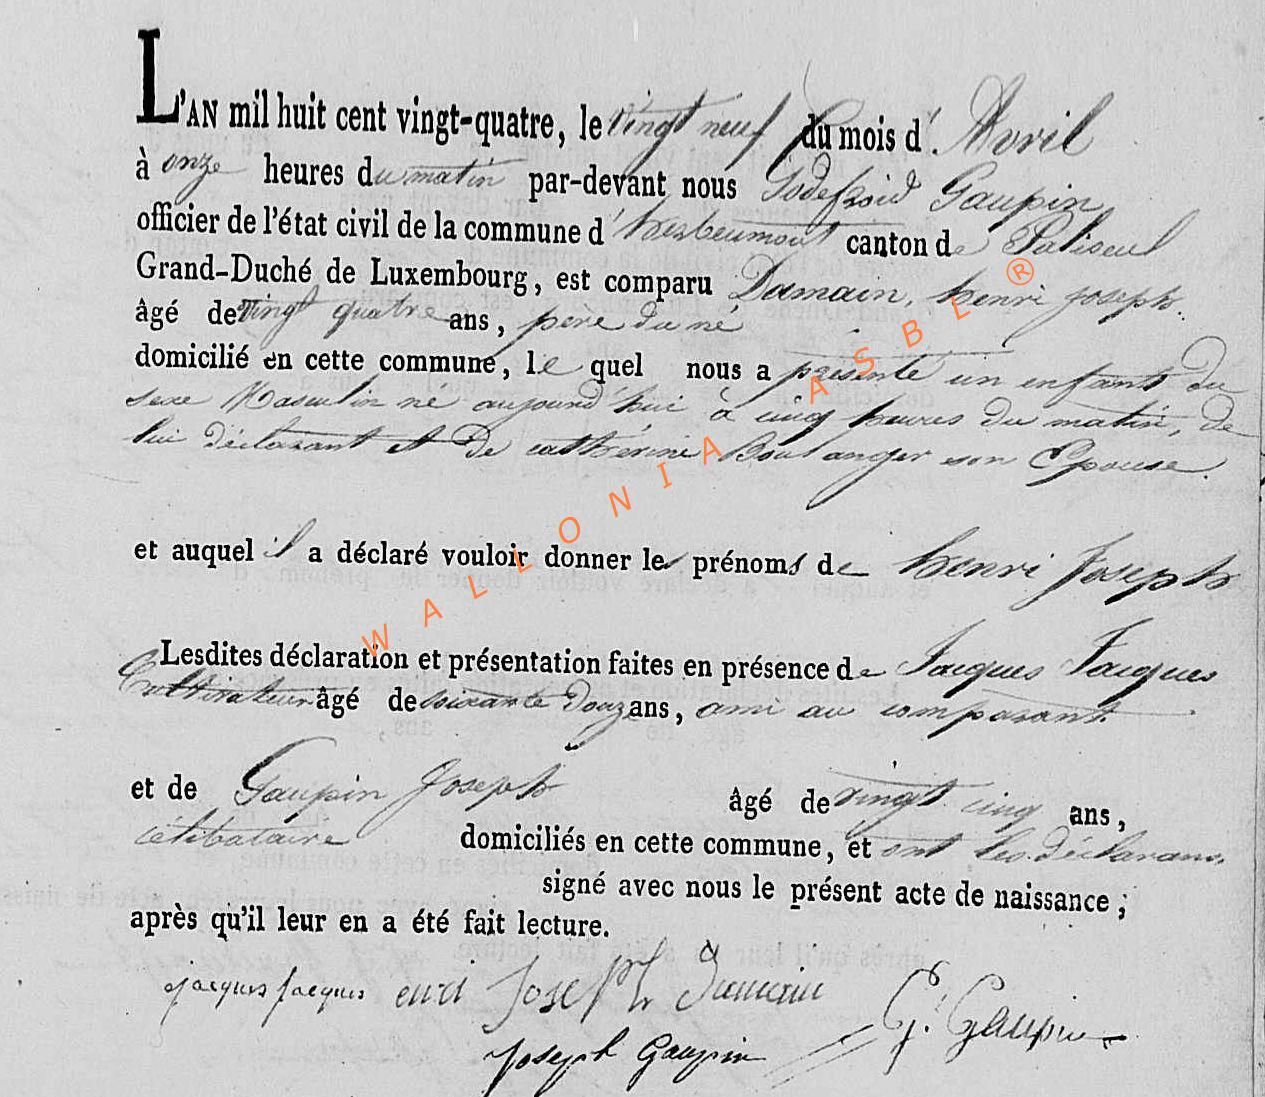 L'AN mil huit cent vingt-quatre, le vingt neuf du mois d'Avril
à onze heures du matin par-devant nous Godefroid Gaupin
officier de l'état civil de la commune d'herbeumont canton de Paliseul
Grand-Duché de Luxembourg, est comparu Damain, henri joseph.
âgé de vingt quatre ans, père du né
domicilié en cette commune, le quel nous a présenté un enfants du
sexe Masculin né aujourd'hui à cinq heures du matin, de
lui déclarant et de catherine Boulanger son Epouse.
et auquel il a déclaré vouloir donner les prénoms de henri Joseph
Lesdites déclaration et présentation faites en présence de Jacques Jacques
Cultivateur âgé de soixante douze ans, ami au comparant
et de Gaupin Joseph âgé de vingt cinq ans,
célibataire domiciliés en cette commune, et ont les déclarans
signé avec nous le présent acte de naissance;
après qu'il leur en a été fait lecture.
jacques jacques Joseph Damain G. Gaupin
Joseph Gaupin
WALLONIA ASBL ®